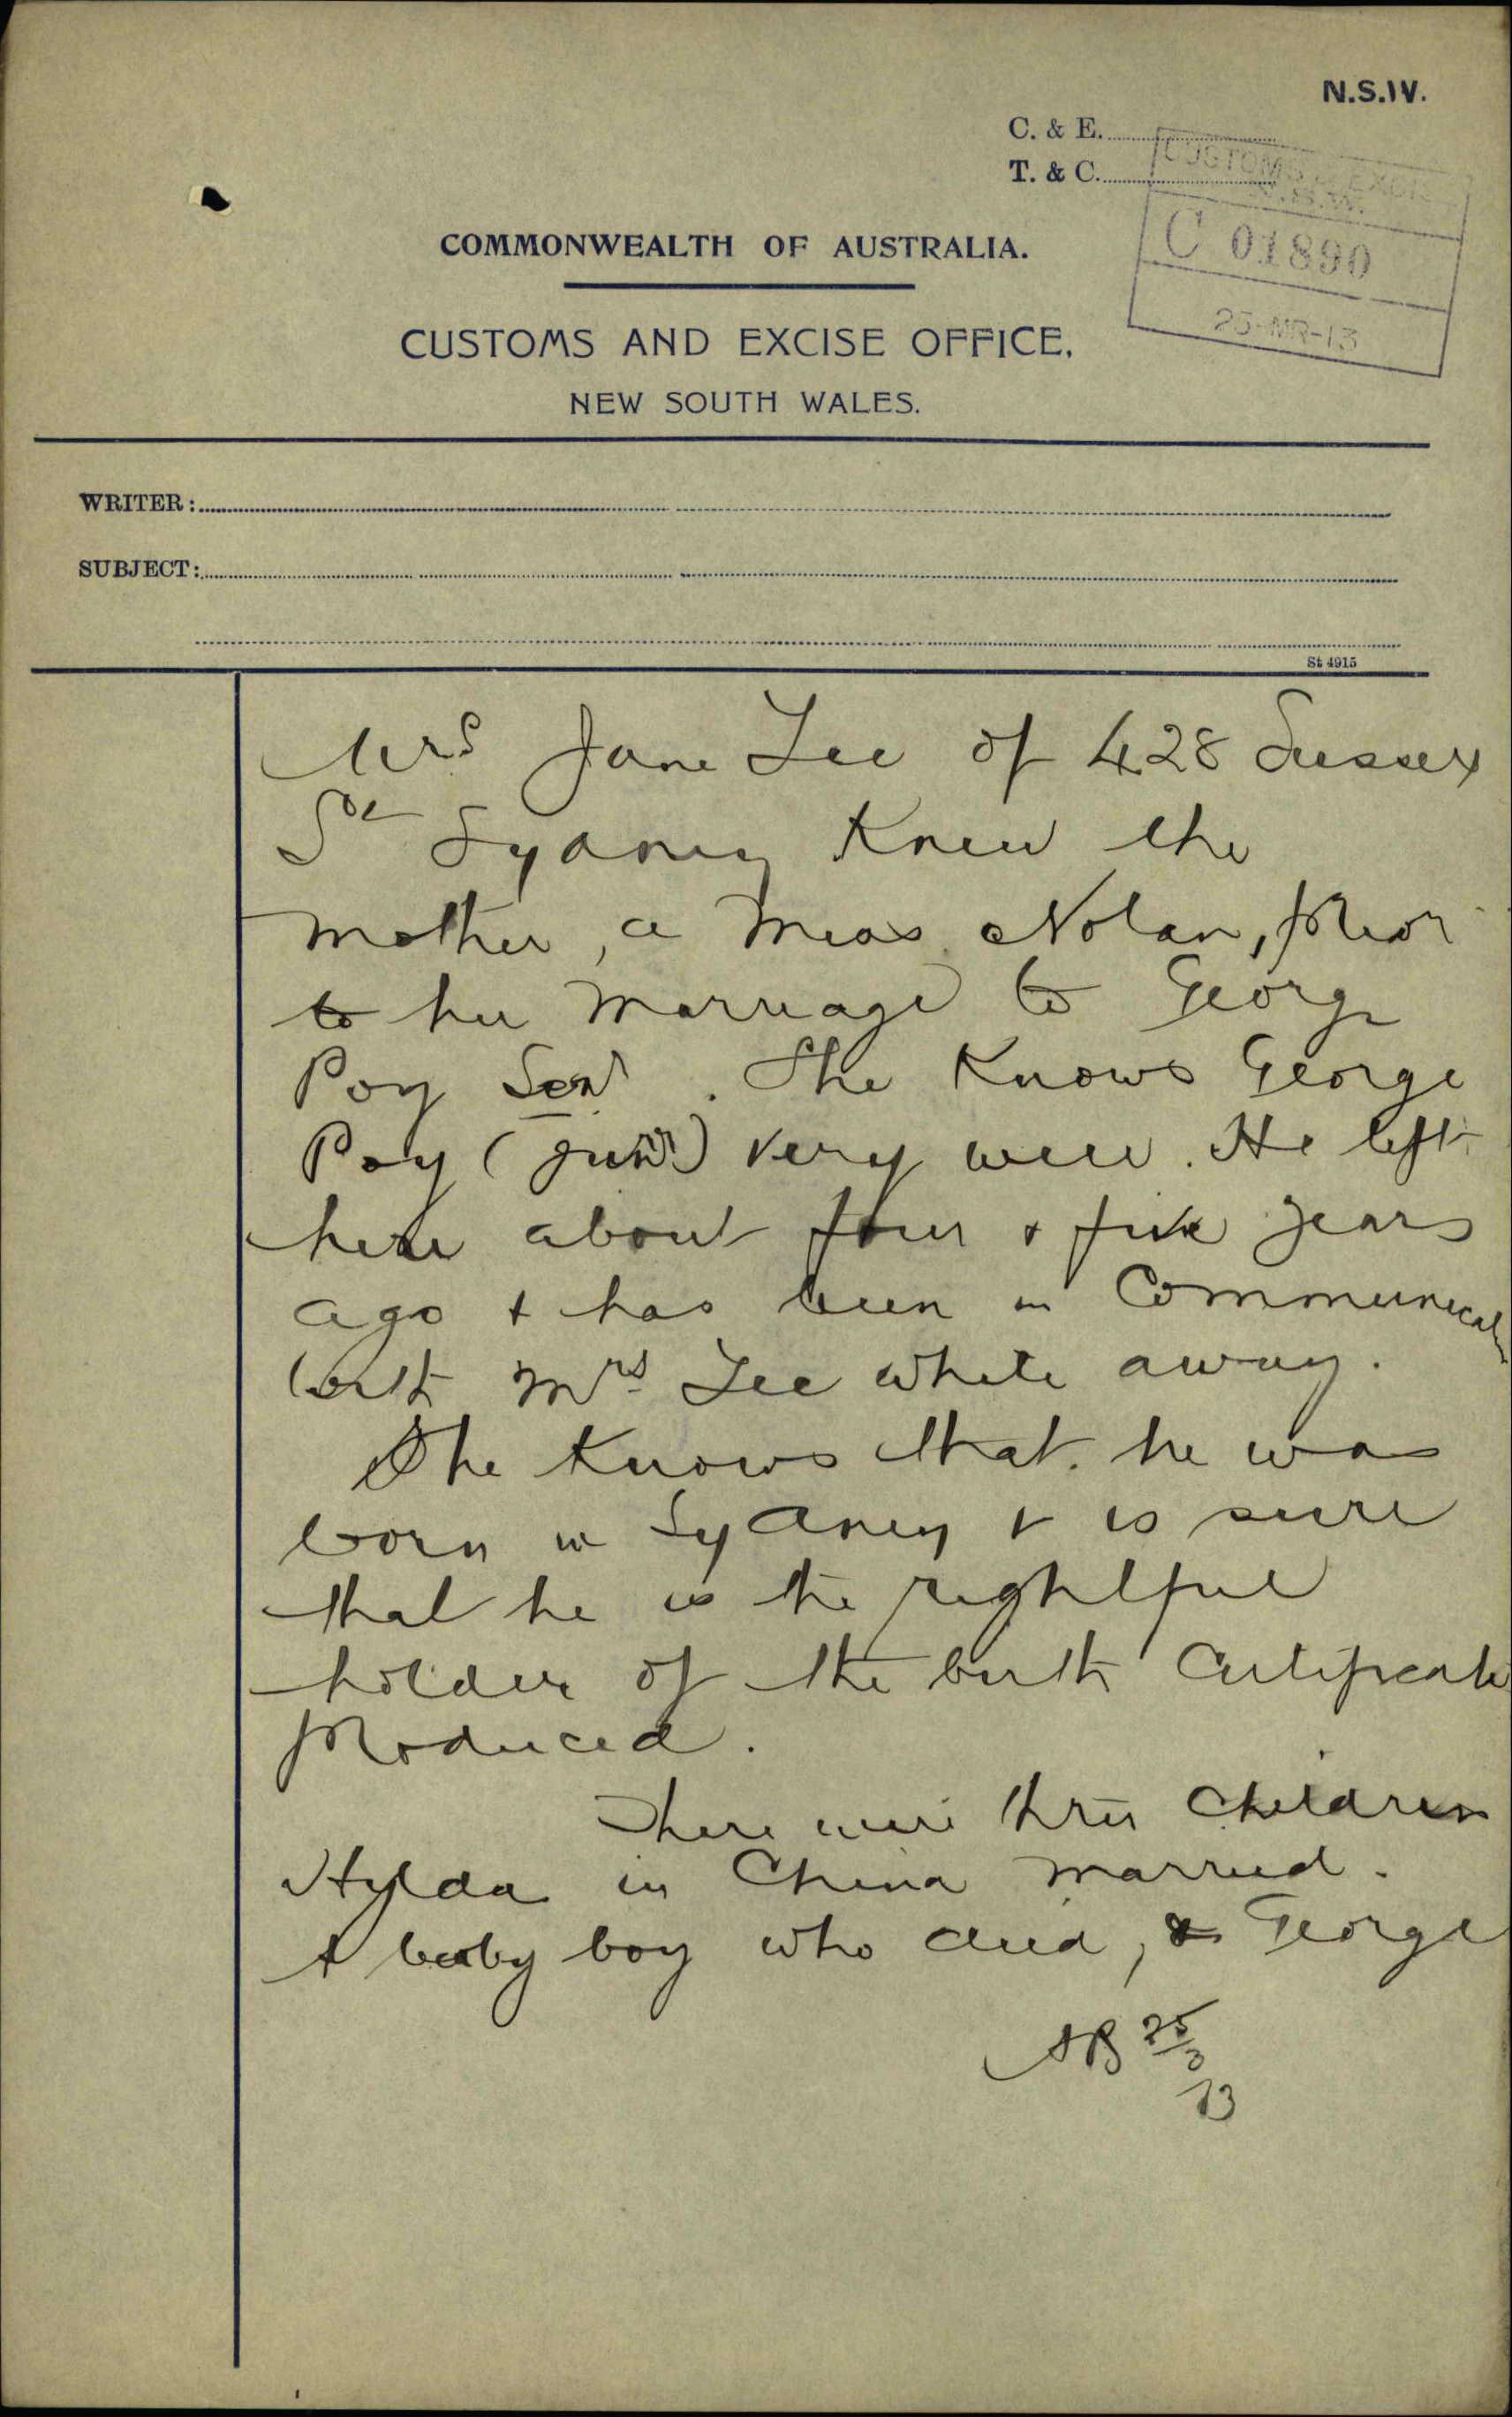 N.S.W.
C. & E.
T. & C.
CUSTOMS & EXCISE
N.S.W.
C 01890
25-MR-13
COMMONWEALTH OF AUSTRALIA.
CUSTOMS AND EXCISE OFFICE,
NEW SOUTH WALES.
WRITER:
SUBJECT:
St 4915
Mrs Jane Lee of 428 Sussex
St Sydney Knew the
mother, a Miss Nolan, prior
to her marriage to George
Poy Senr. She Knows George
Poy (junr) very well. He left
here about four & five years
ago & has been in Communication
with Mrs Lee while away.
She Knows that he was
born in Sydney & is sure
that he is the rightful
holder of the birth Certificate
produced.
There were three Children
Hylda in China married.
A baby boy who died, & George
AB 25/3
13